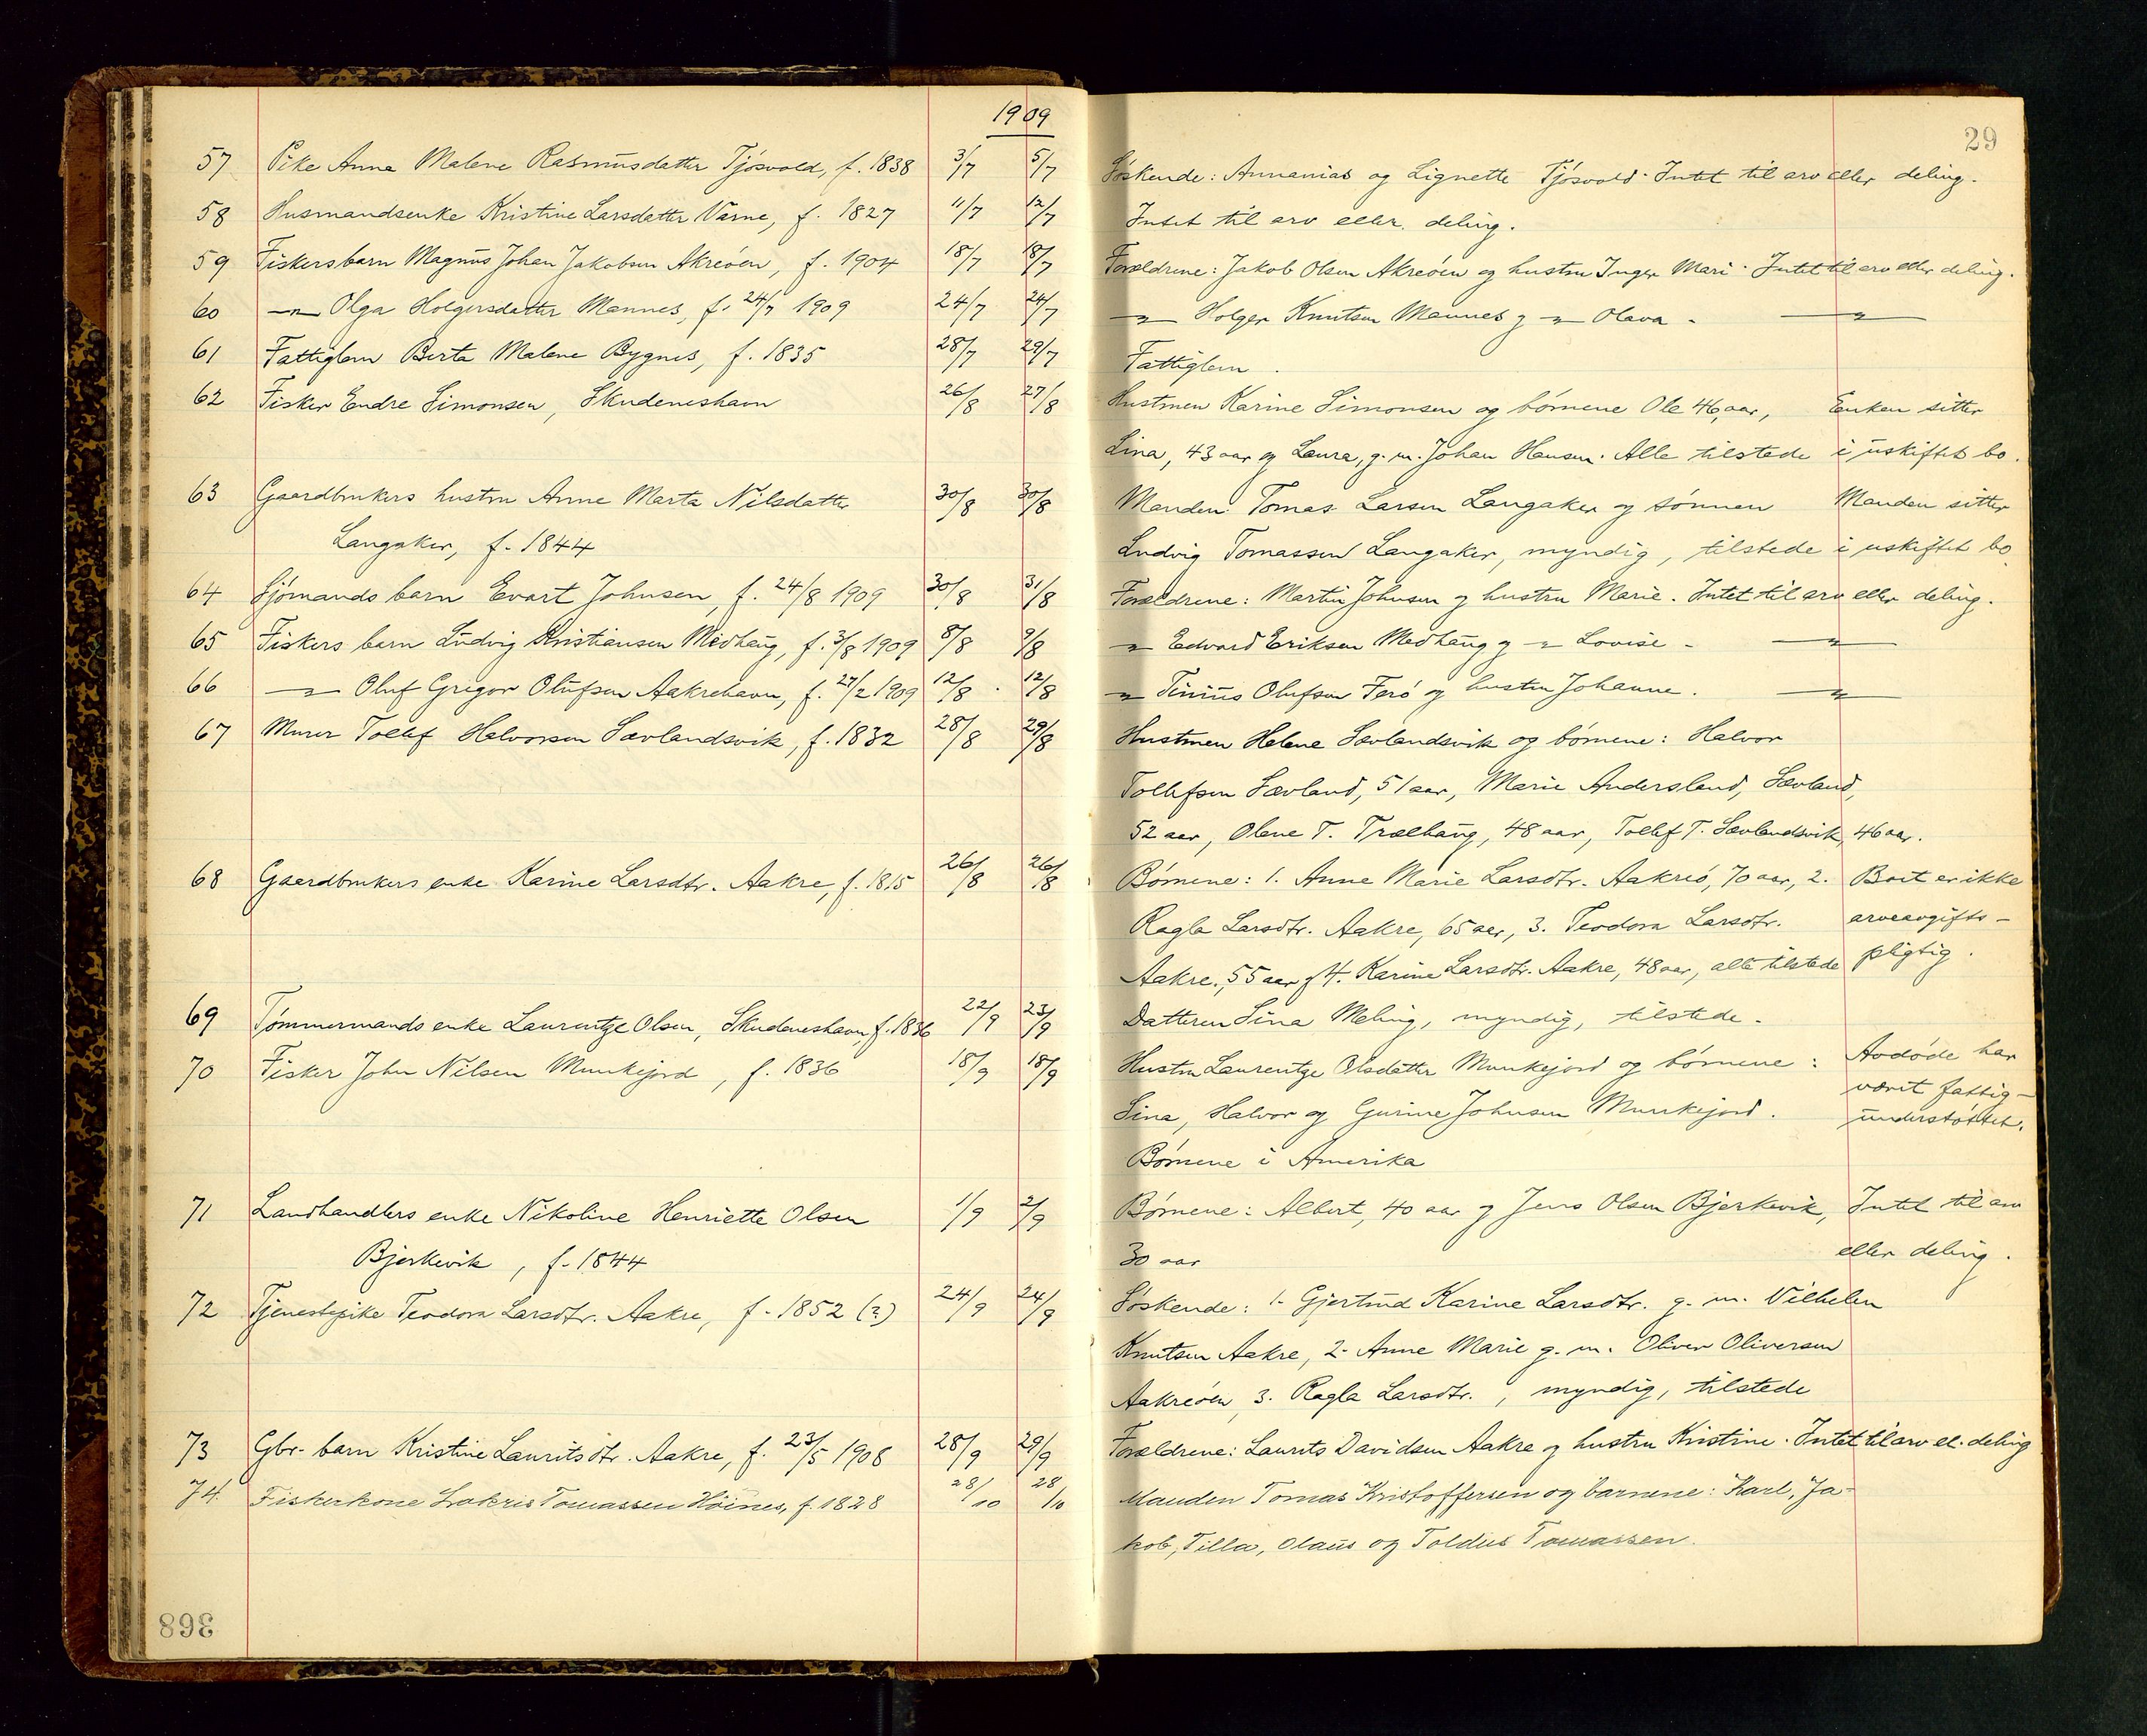 1909
57 Pike Anna Malene Rasmusdatter Tjøsvold, f. 1838 3/7 5/7
58 Husmandsenke Kristine Larsdatter Varne, f. 1827 11/7 12/7
59 Fiskersbarn Magnus Johan Jakobsen Akreøen, f. 1904 18/7 18/7
60 -"- Olga Holgersdatter Mannes, f. 24/7 1909 24/7 24/7
61 Fattiglem Berta Malene Bygnes, f. 1835 28/7 29/7
62 Fisker Endre Simonsen, Skudeneshavn 26/8 27/8
63 Gaardbrukers hustru Anne Marta Nilsdatter 30/8 30/8
Langaker, f. 1844
64 Sjømands barn Evart Johnsen, f. 24/8 1909 30/8 31/8
65 Fiskers barn Ludvig Kristiansen Medhaug, f. 3/8 1909 8/8 9/8
66 -"- Oluf Gregor Olufsen Aakrehavn, f. 27/2 1909 12/8 12/8
67 Murer Tollef Halvorsen Sævlandsvik, f. 1832 28/8 29/8
68 Gaardbrukers enke Karine Larsdtr. Aakre, f. 1815 26/8 26/8
69 Tømmermands enke Laurentze Olsen, Skudeneshavn, f. 1836 22/9 23/9
70 Fisker John Nilsen Munkejord, f. 1836 18/9 18/9
71 Landhandlers enke Nikoline Henriette Olsen 1/9 2/9
Bjerkevik, f. 1844
72 Tjenestepike Teodora Larsdtr. Aakre, f. 1852 (?) 24/9 24/9
73 Gbr. barn Kristine Lauritsdtr. Aakre, f. 23/5 1908 28/9 29/9
74. Fiskerkone Lakris Tomassen Høines, f. 1828 28/10 28/10
898
29
Søskende: Annanias og Lignette Tjøsvold. Intet til arv eller deling.
Intet til arv eller deling.
Forældrene: Jakob Olsen Akreøen og hustru Inger Mari. Intet til arv eller deling.
-"- Holger Knutsen Mannes og -"- Olava - -"-
Fattiglem.
Hustruen Karine Simonsen og børnene Ole 46 aar, Enken sitter
Lina, 43 aar og Laura, g. m. Johan Hansen. Alle tilstede i uskiftet bo.
Manden Tomas Larsen Langaker og sønnen Manden sitter
Ludvig Tomassen Langaker, myndig, tilstede i uskiftet bo.
Forældrene: Martin Johnsen og hustru Marie. Intet til arv eller deling.
-"- Edvard Eriksen Medhaug og -"- Lovise - -"-
-"- Tinius Olufsen Ferø og hustru Johanne. -"-
Hustruen Helene Sævlandsvik og børnene: Halvor
Tollefsen Sævland, 51 aar, Marie Andersland, Sævland,
52 aar, Olene T. Trælhaug, 48 aar, Tollef T. Sævlandsvik, 46 aar.
Børnene: 1. Anne Marie Larsdtr. Aakreø, 70 aar, 2. Boet er ikke
Ragla Larsdtr. Aakre, 65 aar, 3. Teodora Larsdtr. arveavgifts-
Aakre, 55 aar og 4. Karine Larsdtr. Aakre, 48 aar, alle tilstede pligtig.
Datteren Sina Meling, myndig, tilstede.
Hustru Laurentze Olsdatter Munkejord og børnene: Avdøde har
Sina, Halvor og Gurine Johnsen Munkejord. været fattig-
understøttet.
Børnene i Amerika
Børnene: Albert, 40 aar og Jens Olsen Bjerkevik, Intet til arv
30 aar eller deling.
Søskende: 1. Gjertrud Karine Larsdtr. g. m. Vilhelm
Knutsen Aakre, 2. Anne Marie g. m. Oliver Oliversen
Aakreøen, 3. Ragla Larsdtr., myndig, tilstede
Forældrene: Laurits Davidsen Aakre og hustru Kristine. Intet til arv el. deling
Manden Tomas Kristoffersen og barnene: Karl, Ja-
kob, Tilla, Olaus og Toldus Tomassen.